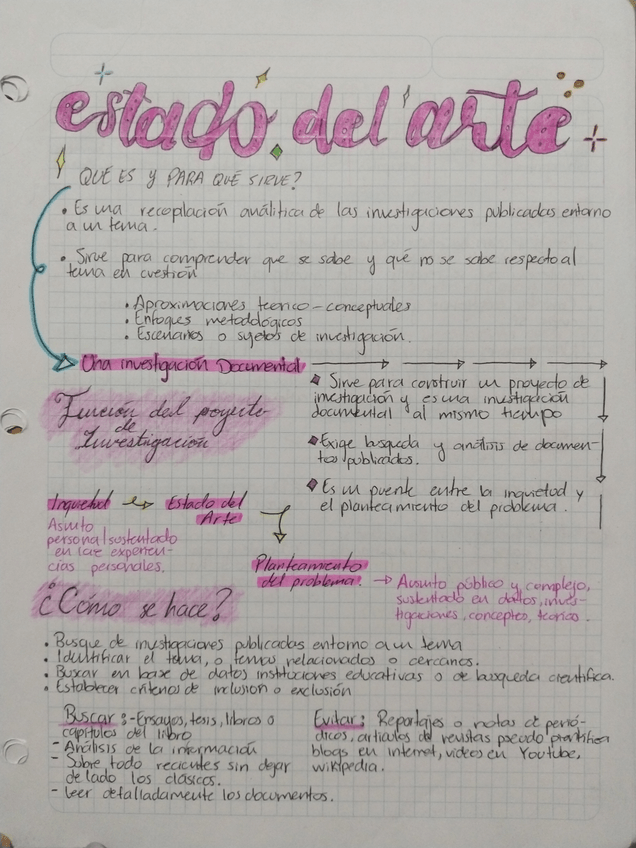 estado del arte
QUÉ ES Y PARA QUÉ SIRVE?
• Es una recopilación análitica de las investigaciones publicadas entorno
a un tema.
• Sirve para comprender que se sabe y qué no se sabe respecto al
tema en cuestión
• Aproximaciones teorico-conceptuales
• Enfoques metodológicos
• Escenarios o sujetos de investigación.
Una investigación Documental
Sirve para construir un proyecto de
investigación y es una investigación
documental al mismo tiempo
Exige busqueda y análisis de documen-
tos publicados.
Es un puente entre la inquietud y
el planteamiento del problema.
Función del poyecto
de
Investigación
Inquietud → Estado del
Arte
Asunto
personal sustentado
en las experien-
cias personales.
Planteamiento
del problema. → Asunto público y complejo,
sustentado en datos, inves-
tigaciones, conceptos, teorías.
¿Cómo se hace?
• Busque de investigaciones publicadas entorno a un tema
• Identificar el tema, o temas relacionados o cercanos.
• Buscar en base de datos instituciones educativas o de busqueda cientifica.
• Establecer criterios de inclusion o exclusión
Buscar: - Ensayos, tesis, libros o
capítulos del libro
- Análisis de la información
- Sobre todo recientes sin dejar
de lado los clásicos.
- Leer detalladamente los documentos.
Evitar: Reportajes o notas de perió-
dicos, articulos de revistas pseudo cientifica
blogs en internet, videos en Youtube,
wikipedia.